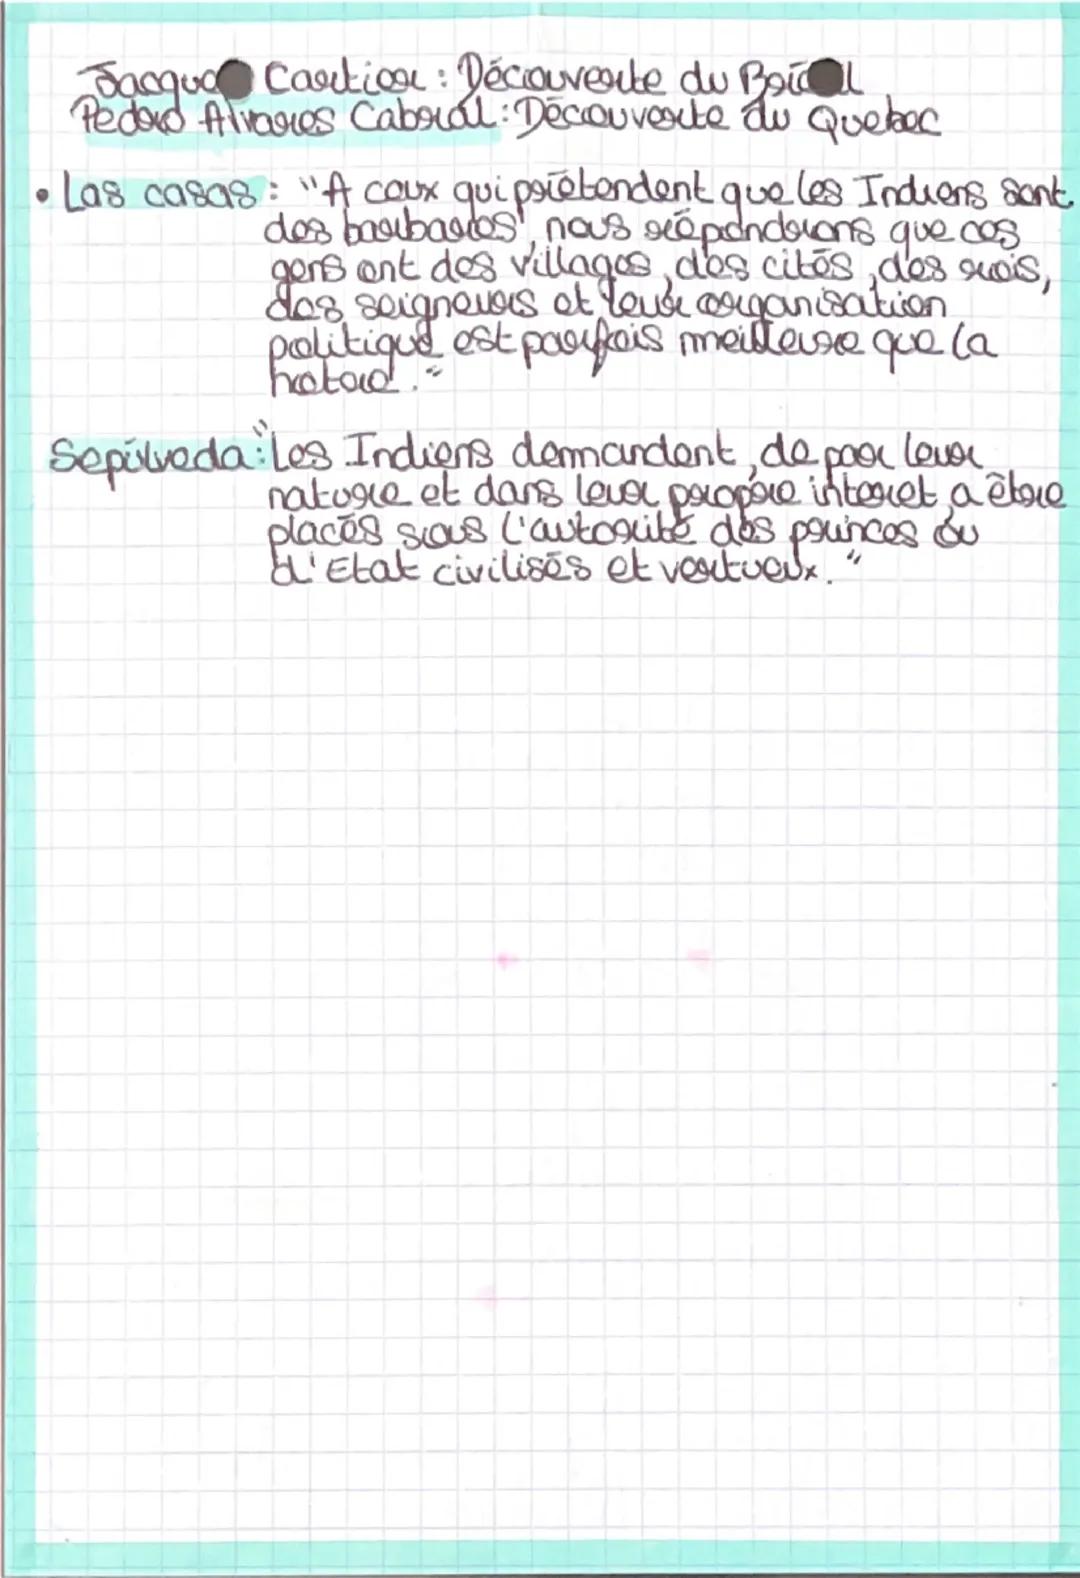 Jacques Cartier : Découverte du Brésil
Pedro Alvares Cabral : Découverte du Quebec
• Las casas : "A ceux qui prétendent que les Indiens sont
des barbares, nous répondrons que ces
gens ont des villages, des cités, des rois,
des seigneurs et leur organisation
politique est parfois meilleure que la
notre."
Sepúlveda : "Les Indiens demandent, de par leur
nature et dans leur propre interet, a être
placés sous l'autorité des princes ou
d'Etat civilisés et vertueux."